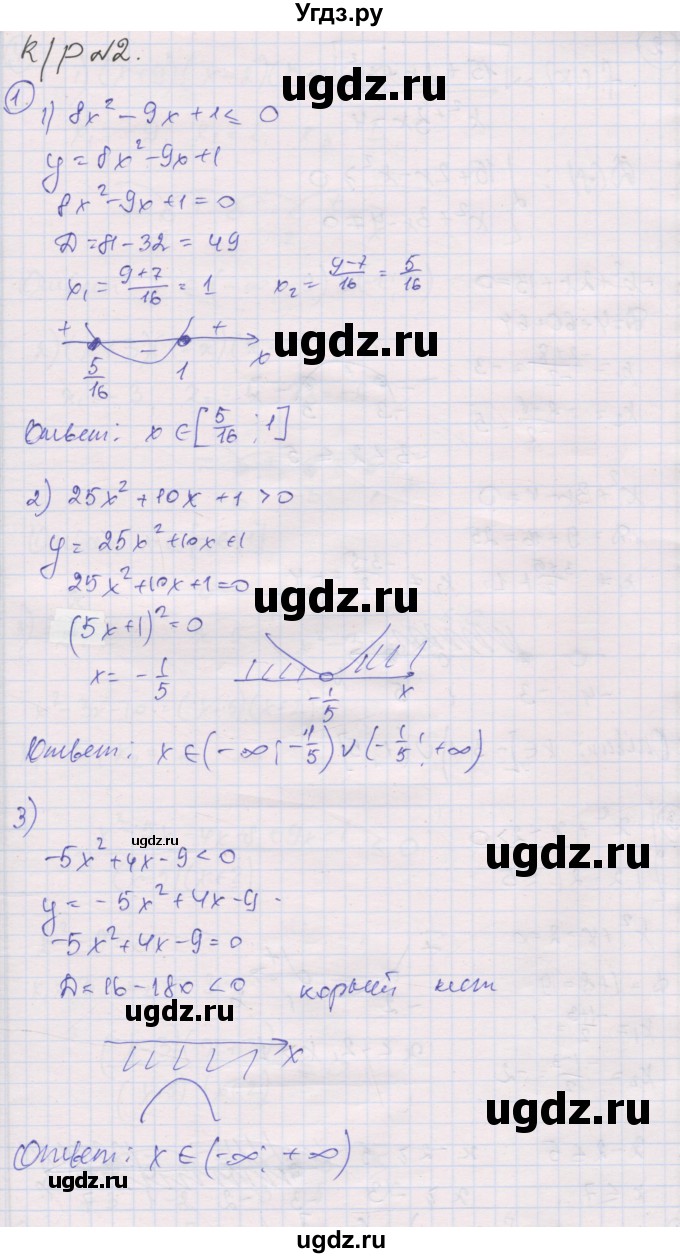 Угдз.ру
К/Р №2.
ugdz.ru
1.
1) 8x² - 9x + 1 ≤ 0
y = 8x² - 9x + 1
8x² - 9x + 1 = 0
ugdz.ru
D = 81 - 32 = 49
x₁ = (9+7)/16 = 1   x₂ = (9-7)/16 = 5/16
+ - + x
ugdz.ru
5/16   1
Ответ: x ∈ [5/16 ; 1]
ugdz.ru
2) 25x² + 10x + 1 > 0
y = 25x² + 10x + 1
25x² + 10x + 1 = 0
ugdz.ru
(5x + 1)² = 0
x = -1/5
-1/5   x
ugdz.ru
Ответ: x ∈ (-∞; -1/5) ∪ (-1/5; +∞)
3)
ugdz.ru
ugdz.ru
-5x² + 4x - 9 < 0
y = -5x² + 4x - 9
-5x² + 4x - 9 = 0
D = 16 - 180 < 0   корней нет
ugdz.ru
x
ugdz.ru
Ответ: x ∈ (-∞; +∞)
ugdz.ru
ugdz.ru